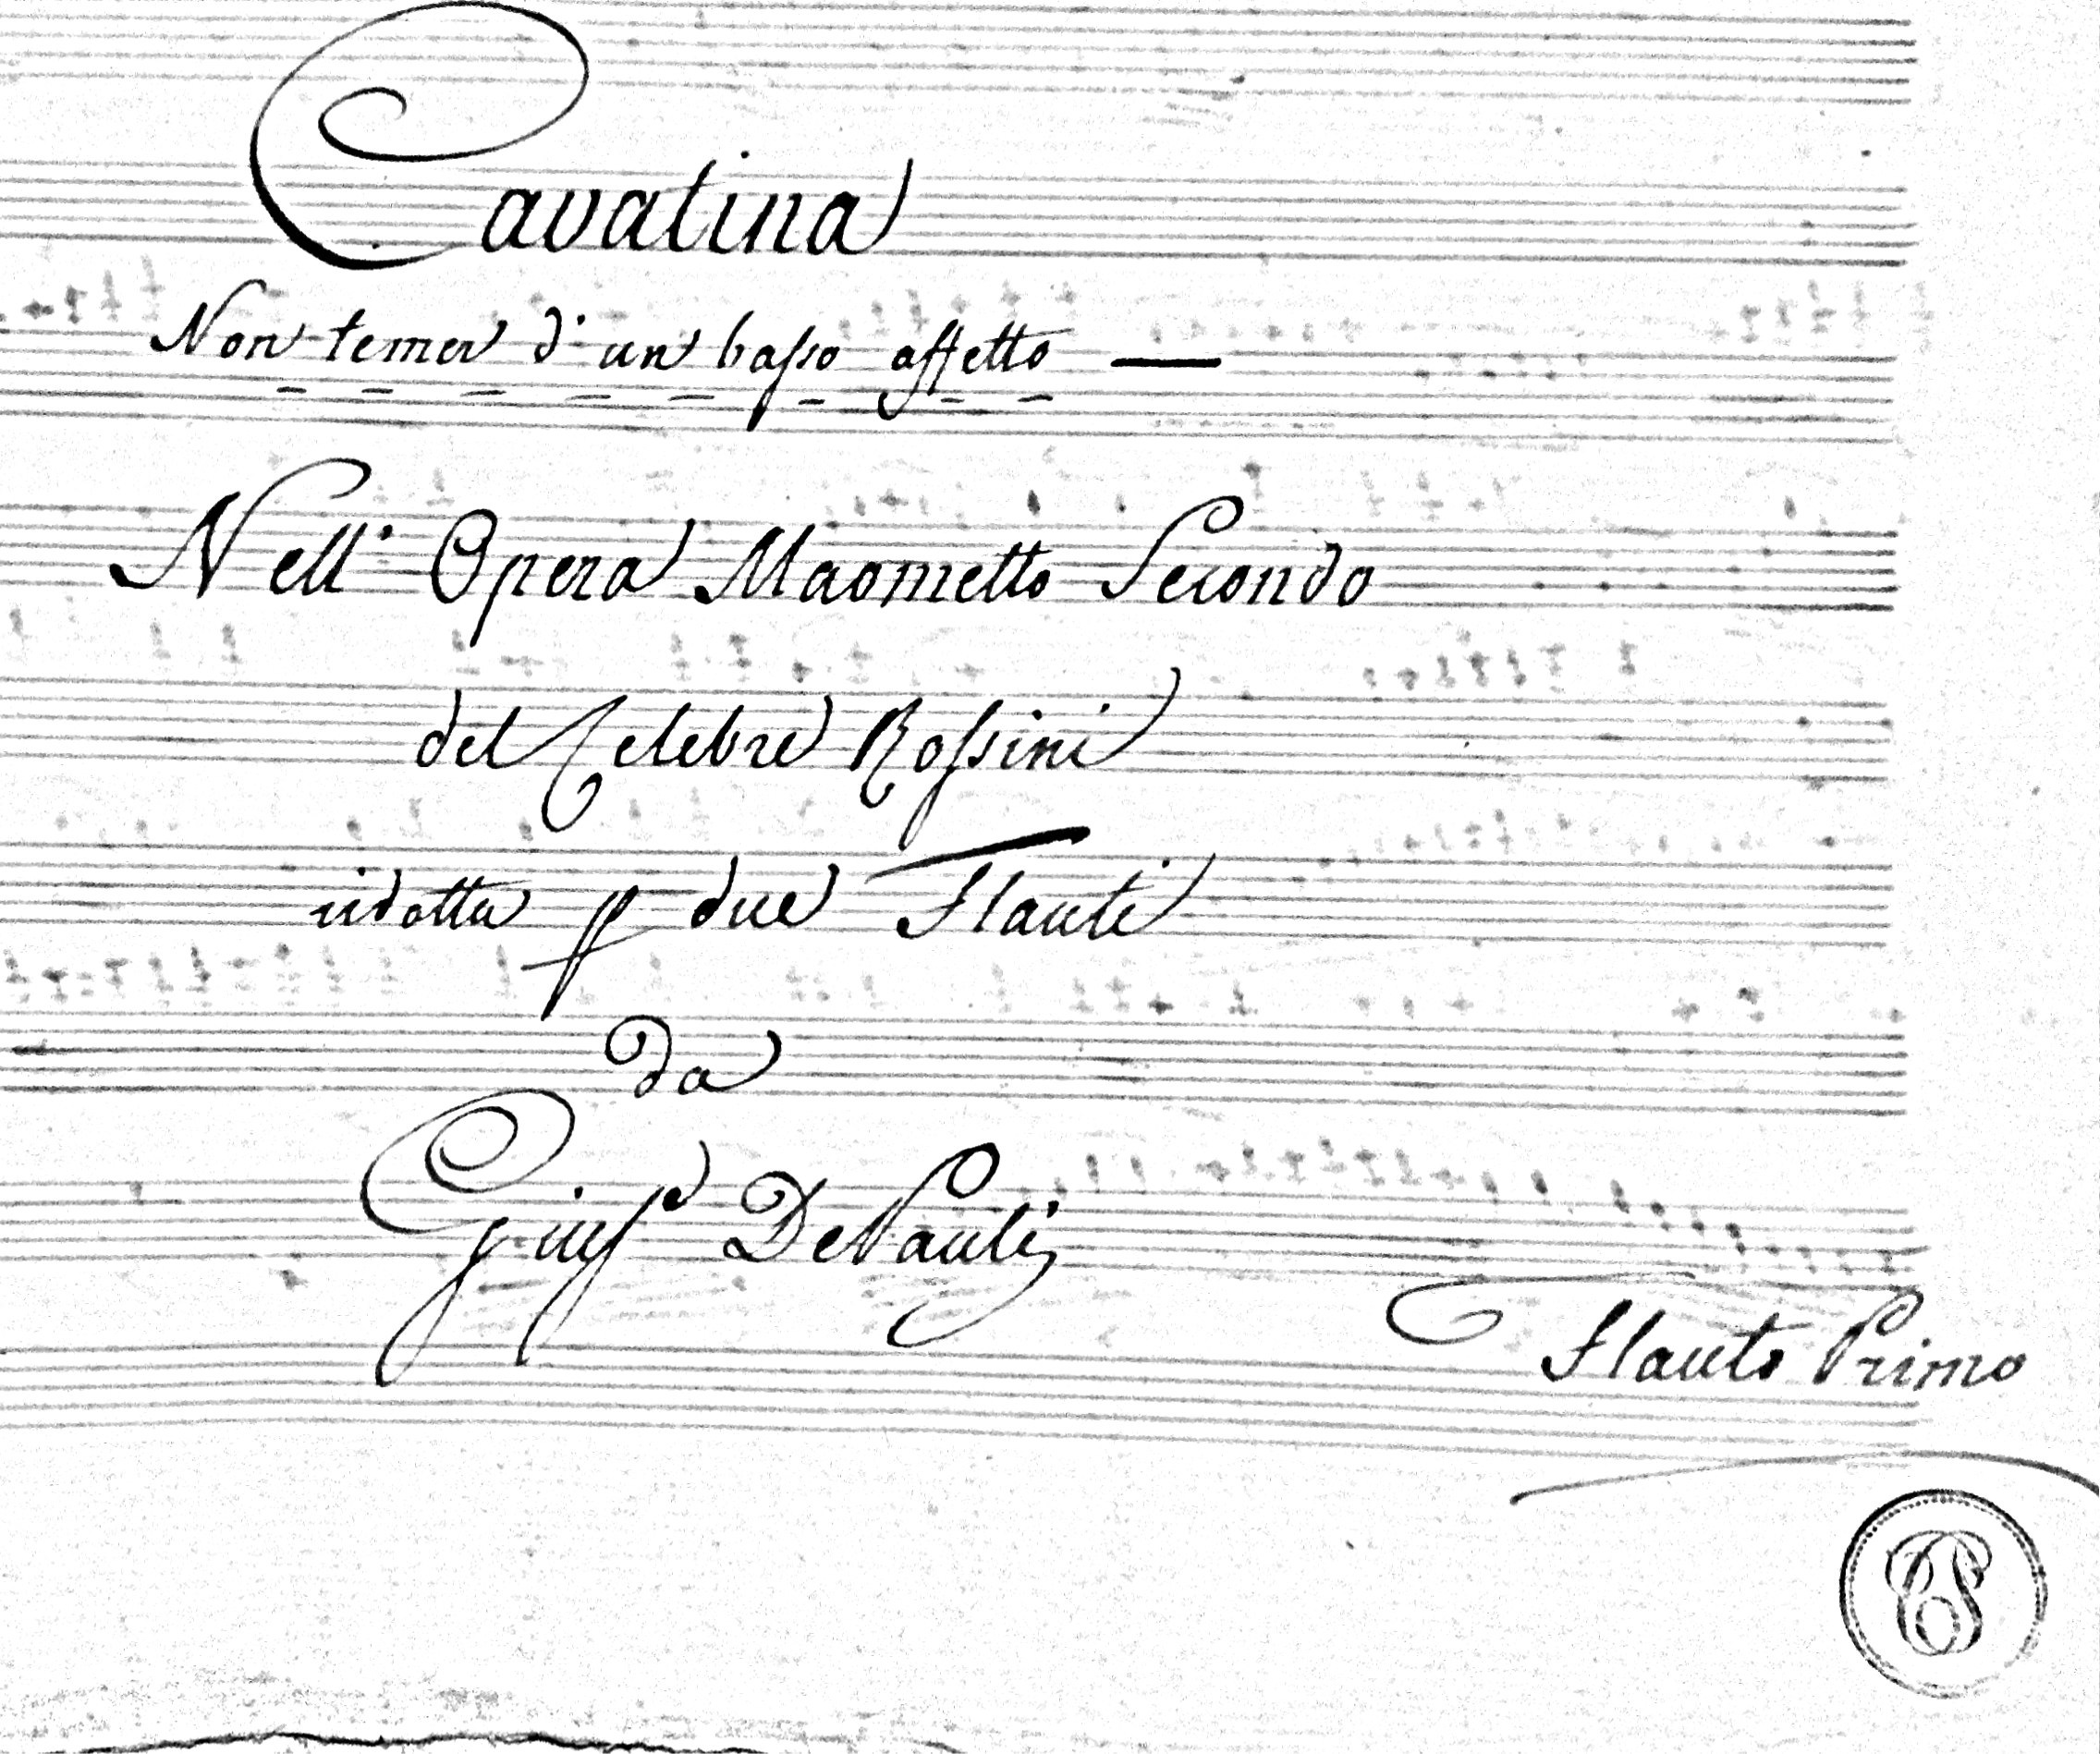 Cavatina
Non temer d'un basso affetto —
Nell' Opera Maometto Secondo
del Celebre Rossini
ridotta p due Flauti
Da
Giusᵉ DePauli
Flauto Primo